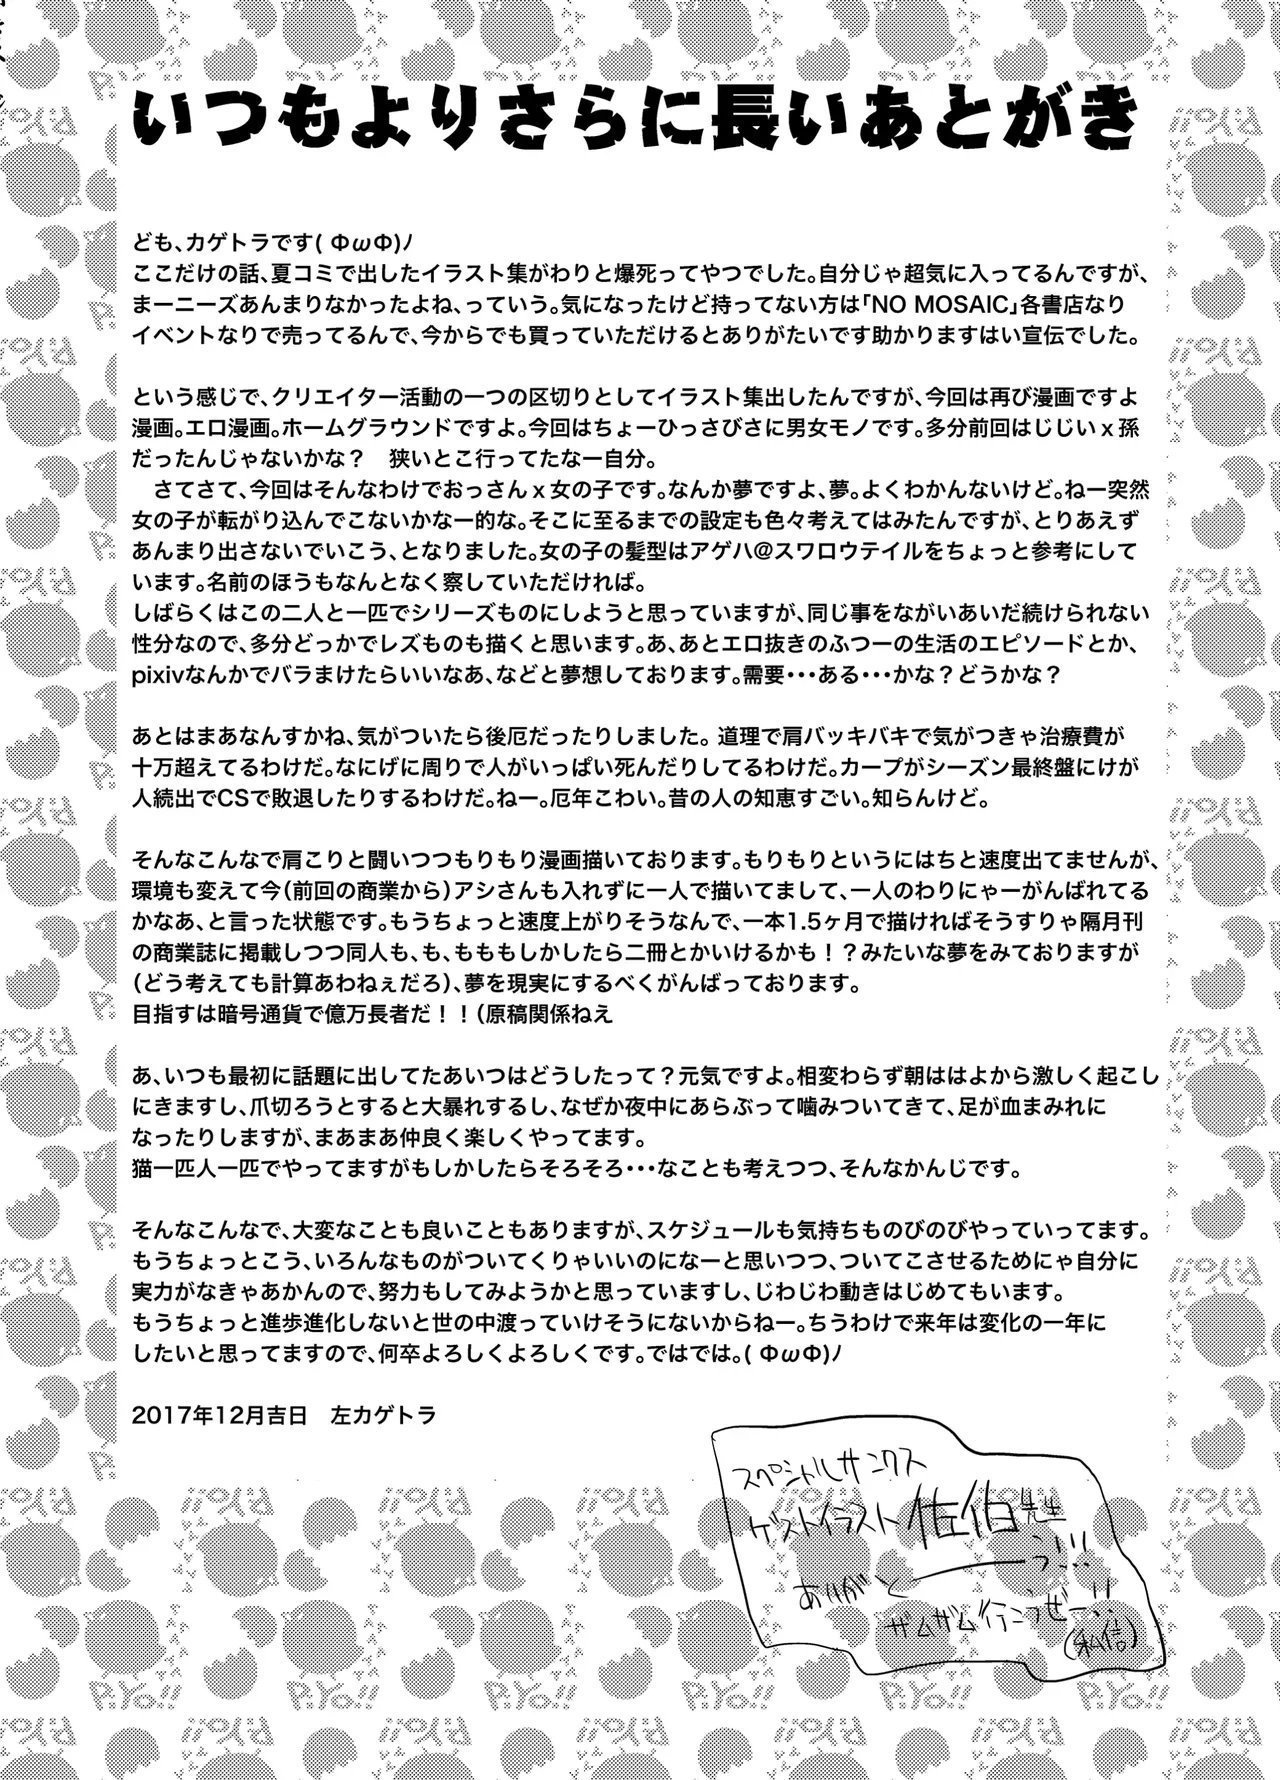 いつもよりさらに長いあとがき
ども、カゲトラです( ΦωΦ)ﾉ
ここだけの話、夏コミで出したイラスト集がわりと爆死ってやつでした。自分じゃ超気に入ってるんですが、
まーニーズあんまりなかったよね、っていう。気になったけど持ってない方は「NO MOSAIC」各書店なり
イベントなりで売ってるんで、今からでも買っていただけるとありがたいです助かりますはい宣伝でした。
という感じで、クリエイター活動の一つの区切りとしてイラスト集出したんですが、今回は再び漫画ですよ
漫画。エロ漫画。ホームグラウンドですよ。今回はちょーひっさびさに男女モノです。多分前回はじじいｘ孫
だったんじゃないかな？　狭いとこ行ってたなー自分。
　さてさて、今回はそんなわけでおっさんｘ女の子です。なんか夢ですよ、夢。よくわかんないけど。ねー突然
女の子が転がり込んでこないかなー的な。そこに至るまでの設定も色々考えてはみたんですが、とりあえず
あんまり出さないでいこう、となりました。女の子の髪型はアゲハ@スワロウテイルをちょっと参考にして
います。名前のほうもなんとなく察していただければ。
しばらくはこの二人と一匹でシリーズものにしようと思っていますが、同じ事をながいあいだ続けられない
性分なので、多分どっかでレズものも描くと思います。あ、あとエロ抜きのふつーの生活のエピソードとか、
pixivなんかでバラまけたらいいなあ、などと夢想しております。需要・・・ある・・・かな？どうかな？
あとはまあなんすかね、気がついたら後厄だったりしました。道理で肩バッキバキで気がつきゃ治療費が
十万超えてるわけだ。なにげに周りで人がいっぱい死んだりしてるわけだ。カープがシーズン最終盤にけが
人続出でCSで敗退したりするわけだ。ねー。厄年こわい。昔の人の知恵すごい。知らんけど。
そんなこんなで肩こりと闘いつつもりもり漫画描いております。もりもりというにはちと速度出てませんが、
環境も変えて今（前回の商業から）アシさんも入れずに一人で描いてまして、一人のわりにゃーがんばれてる
かなあ、と言った状態です。もうちょっと速度上がりそうなんで、一本1.5ヶ月で描ければそうすりゃ隔月刊
の商業誌に掲載しつつ同人も、も、もももしかしたら二冊とかいけるかも！？みたいな夢をみておりますが
（どう考えても計算あわねぇだろ）、夢を現実にするべくがんばっております。
目指すは暗号通貨で億万長者だ！！（原稿関係ねえ
あ、いつも最初に話題に出してたあいつはどうしたって？元気ですよ。相変わらず朝ははよから激しく起こし
にきますし、爪切ろうとすると大暴れするし、なぜか夜中にあらぶって噛みついてきて、足が血まみれに
なったりしますが、まあまあ仲良く楽しくやってます。
猫一匹人一匹でやってますがもしかしたらそろそろ・・・なことも考えつつ、そんなかんじです。
そんなこんなで、大変なことも良いこともありますが、スケジュールも気持ちものびのびやっていってます。
もうちょっとこう、いろんなものがついてくりゃいいのになーと思いつつ、ついてこさせるためにゃ自分に
実力がなきゃあかんので、努力もしてみようかと思っていますし、じわじわ動きはじめてもいます。
もうちょっと進歩進化しないと世の中渡っていけそうにないからねー。ちうわけで来年は変化の一年に
したいと思ってますので、何卒よろしくよろしくです。ではでは。( ΦωΦ)ﾉ
2017年12月吉日　左カゲトラ
スペシャルサンクス
ゲストイラスト 佐伯先生
ありがとーーう!!!
ザムザム行こうぜー!!
(私信)
P.Yo!!